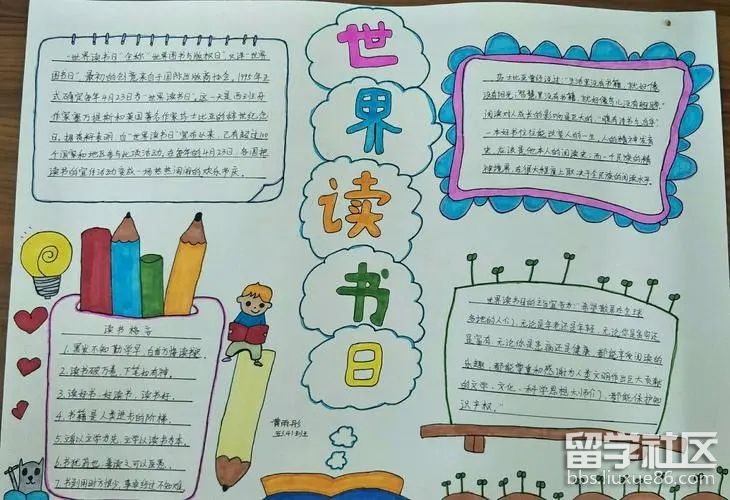 世
界
读
书
日
"世界读书日"全称"世界图书与版权日",又译"世界
图书日",最初的创意来自于国际出版商协会。1995年正
式确定每年4月23日为"世界读书日"。这一天是西班牙
作家塞万提斯和英国著名作家莎士比亚的辞世纪念
日。据资料表明,自"世界读书日"宣布以来,已有超过100
个国家和地区参与此项活动。在每年的4月23日,各国把
读书的宣传活动变成一场热热闹闹的欢乐节庆。
莎士比亚曾经说过:"生活里没有书籍,就好像
没有阳光;智慧里没有书籍,就好像鸟儿没有翅膀。"
阅读对人成长的影响是巨大的,
一本好书往往能改变人的一生。人的精神发育
史,应该是他本人的阅读史;而一个民族的精
神境界,在很大程度上取决于全民族的阅读水平。
读书格言
1.黑发不知勤学早,白首方悔读书迟。
2.读书破万卷,下笔如有神。
3.读好书,好读书,读书好。
4.书籍是人类进步的阶梯。
5.立身以立学为先,立学以读书为本。
6.书犹药也,善读之可以医愚。
7.书到用时方恨少,事非经过不知难。
世界读书日的主旨宣言为:"希望散居在全球
各地的人们,无论是年老还是年轻,无论你是贫穷还
是富有,无论你是患病还是健康,都能享受阅读的
乐趣,都能尊重和感谢为人类文明作出巨大贡献
的文学、文化、科学思想大师们,都能保护知
识产权。"
黄雨彤
五(4)班
留学社区
bbs.liuxue86.com